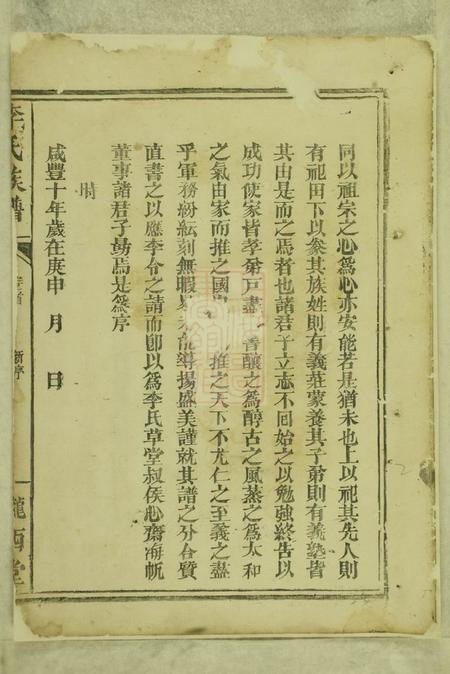 同以祖宗之心爲心亦安能若是猶未也上以祀其先人則
有祀田下以衆其族姓則有義莊蒙養其子弟則有義塾皆
其由是而之焉者也諸君子立志不回始之以勉強終告以
成功使家皆孝弟戸盡善釀之爲醇古之風蒸之爲太和
之氣由家而推之國推之天下不尤仁之至義之盡
乎軍務紛紜刻無暇導揚盛美謹就其譜之分合質
直書之以應李令之請而卽以爲李氏草堂叔侯心齋海帆
董事諸君子勗焉是爲序
時
咸豐十年歲在庚申 月 日
李氏族譜 卷首 新序 隴西堂